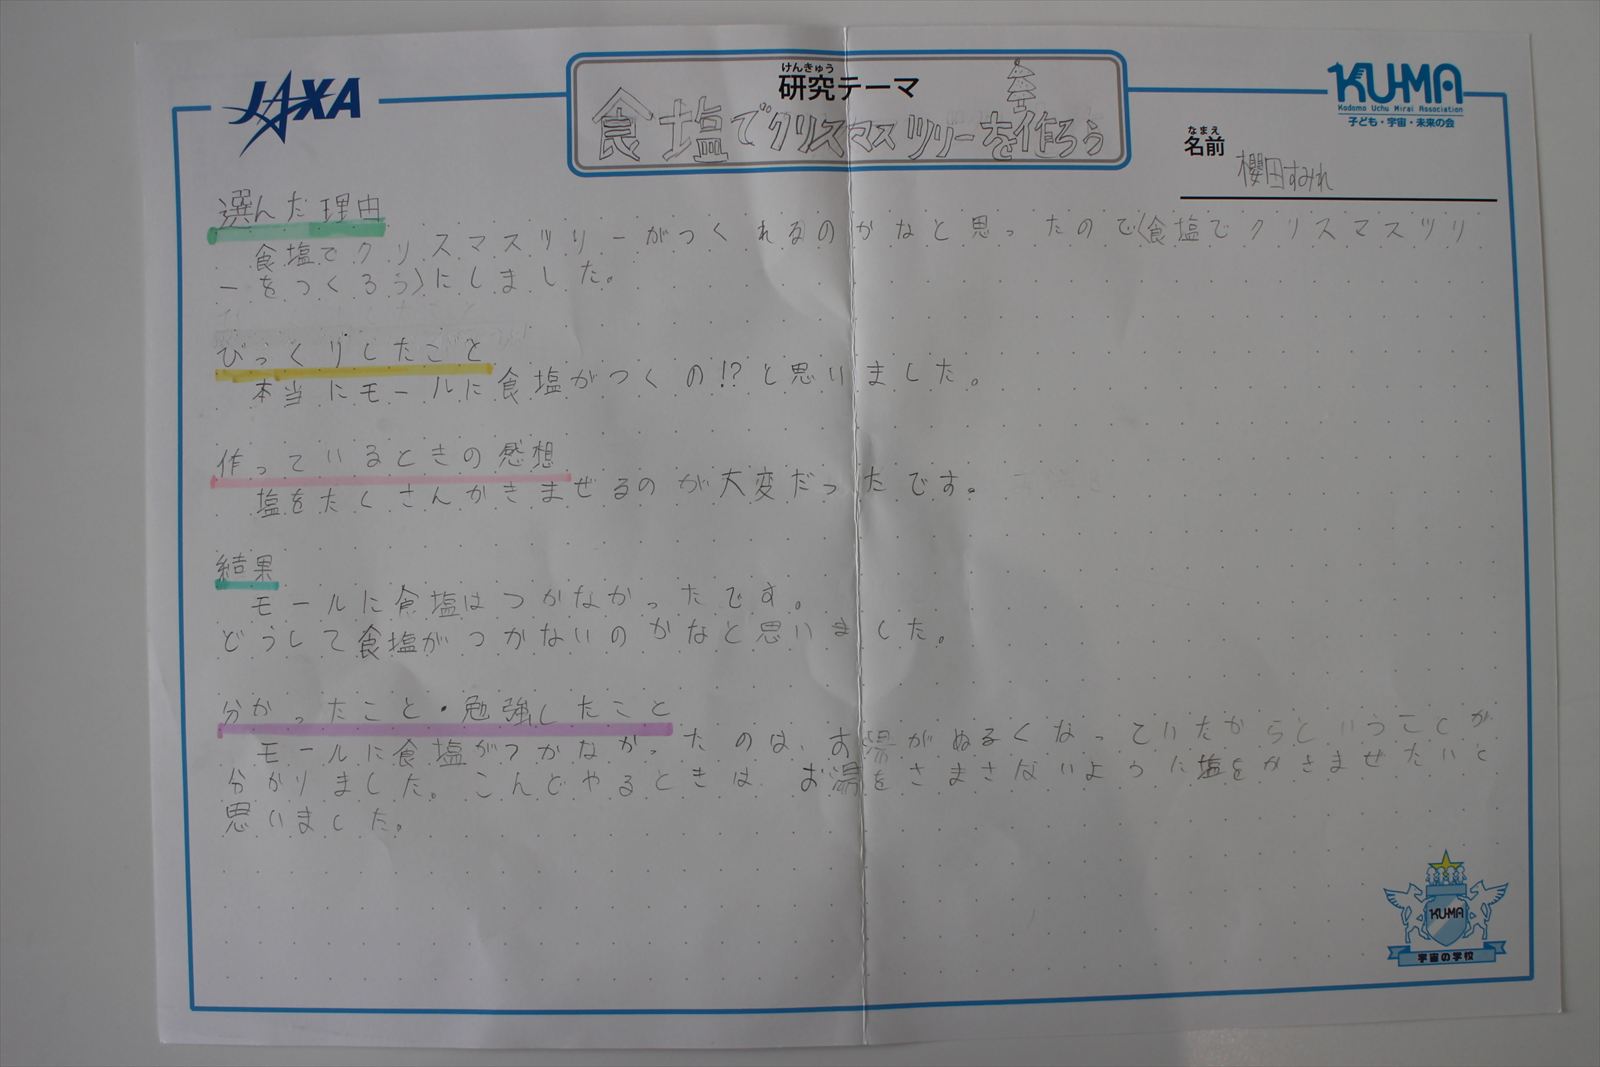 JAXA
けんきゅう
研究テーマ
食塩でクリスマスツリーを作ろう
KU-MA
Kodomo Uchu Mirai Association
子ども・宇宙・未来の会
なまえ
名前
櫻田すみれ
選んだ理由
食塩でクリスマスツリーがつくれるのかなと思ったので(食塩でクリスマスツリ
ーをつくろう)にしました。
びっくりしたこと
本当にモールに食塩がつくの!?と思いました。
作っているときの感想
塩をたくさんかきまぜるのが大変だったです。
結果
モールに食塩はつかなかったです。
どうして食塩がつかないのかなと思いました。
分かったこと・勉強したこと
モールに食塩がつかなかったのは、お湯がぬるくなっていたからということが
分かりました。こんどやるときは、お湯をさまさないように塩をかきませたいと
思いました。
KU-MA
宇宙の学校